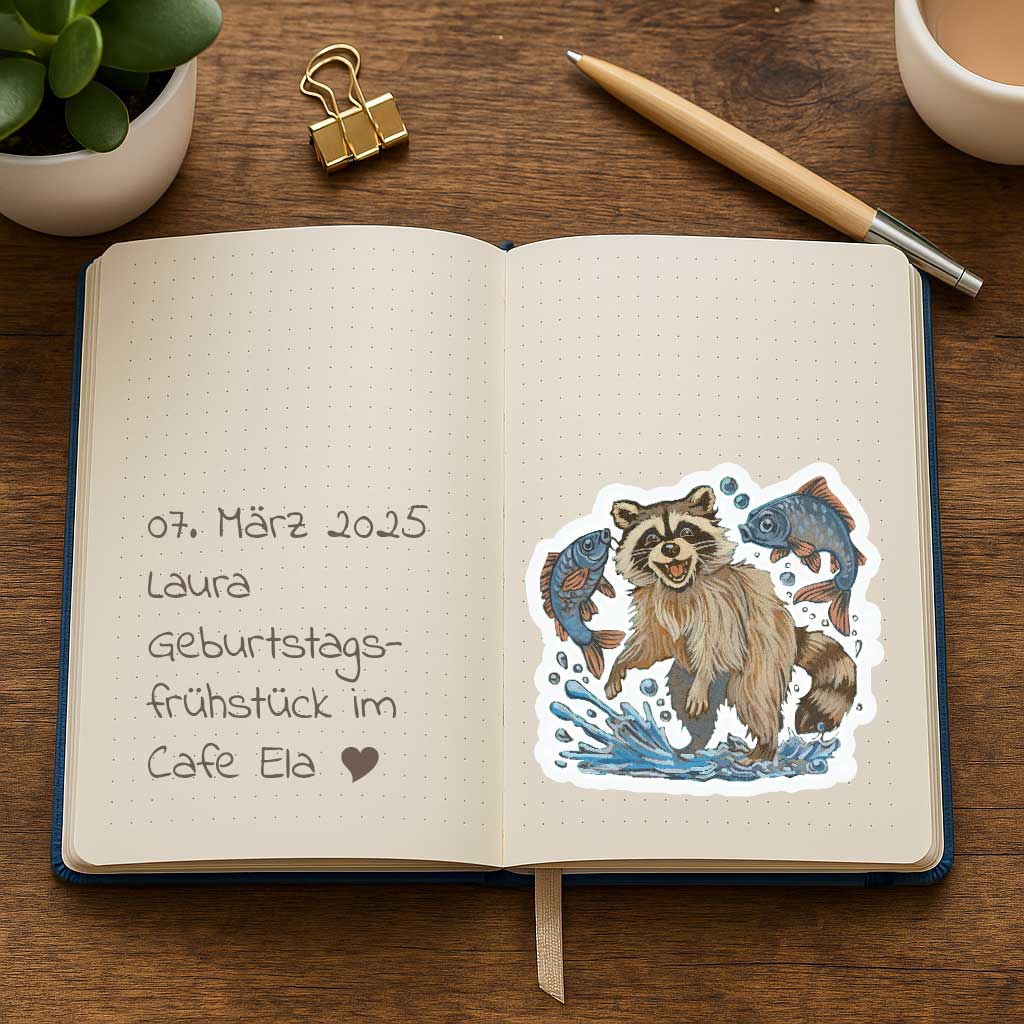 07. März 2025
Laura
Geburtstags-
frühstück im
Cafe Ela ♥